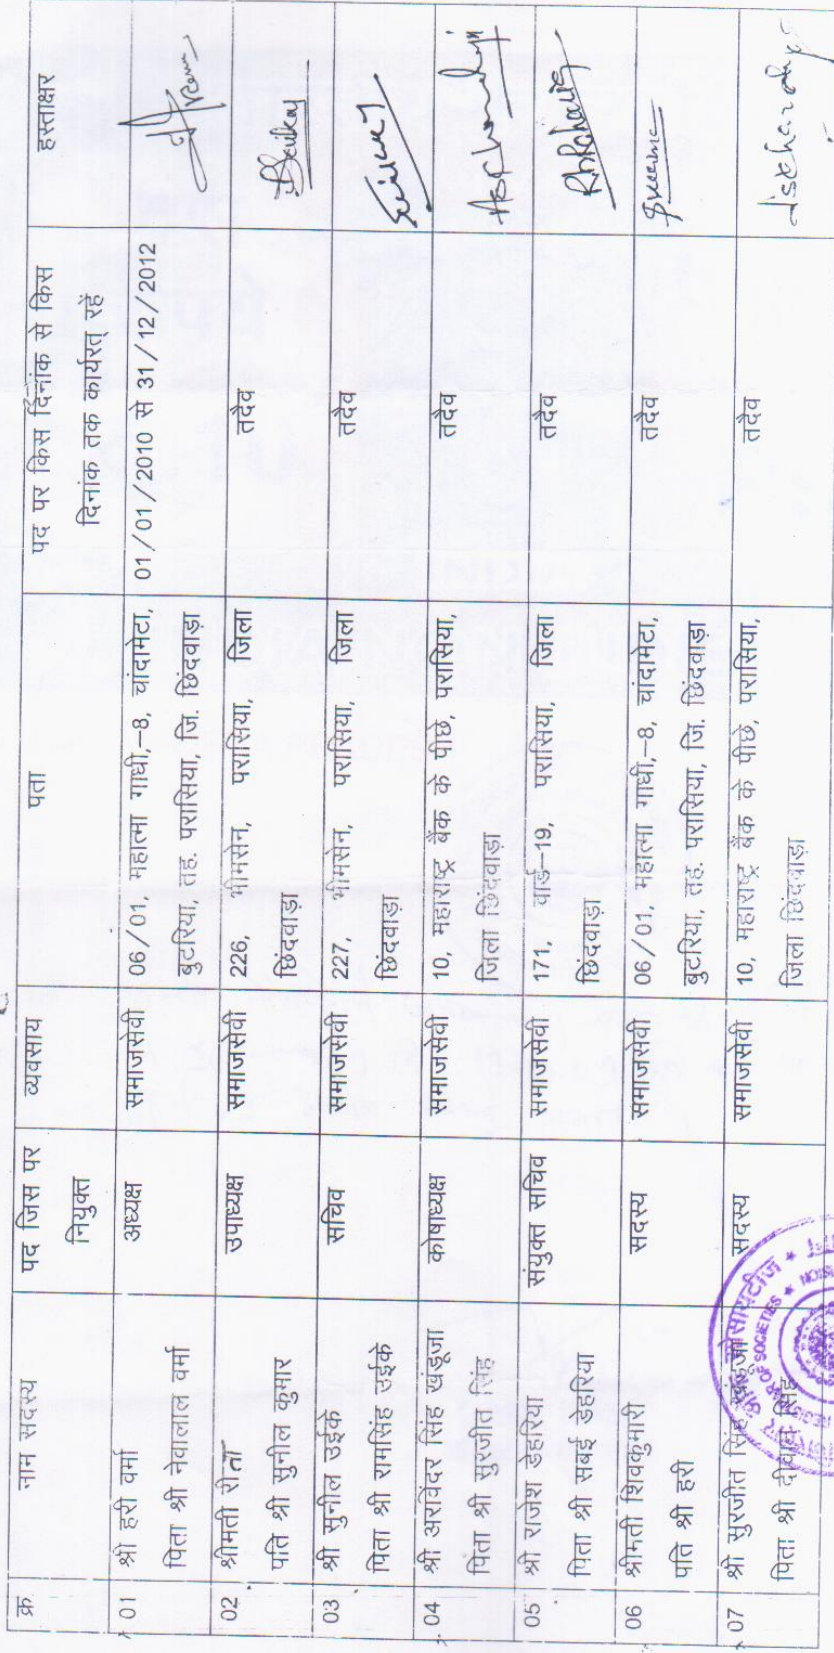 क्र
नाम सदस्य
पद जिस पर
नियुक्त
व्यवसाय
पता
पद पर किस दिनांक से किस
दिनांक तक कार्यरत् रहें
हस्ताक्षर
01
श्री हरी वर्मा
पिता श्री नेवालाल वर्मा
अध्यक्ष
समाजसेवी
06/01 महात्मा गाधी,-8, चांदामेटा,
बुटरिया, तह. परासिया, जि. छिंदवाड़ा
01/01/2010 से 31/12/2012
02
श्रीमती रीता
पति श्री सुनील कुमार
उपाध्यक्ष
समाजसेवी
226, भीमसेन, परासिया, जिला
छिंदवाड़ा
तदैव
03
श्री सुनील उईके
पिता श्री रामसिंह उईके
सचिव
समाजसेवी
227, भीमसेन, परासिया, जिला
छिंदवाड़ा
तदैव
04
श्री अरविंदर सिंह खडूजा
पिता श्री सुरजीत सिंह
कोषाध्यक्ष
समाजसेवी
10, महाराष्ट्र बैंक के पीछे, परासिया,
जिला छिंदवाड़ा
तदैव
05
श्री राजेश डेहरिया
पिता श्री सबई डेहरिया
संयुक्त सचिव
समाजसेवी
171, वार्ड-19, परासिया, जिला
छिंदवाड़ा
तदैव
06
श्रीमती शिवकुमारी
पति श्री हरी
सदस्य
समाजसेवी
06/01, महात्मा गाधी,-8, चांदामेटा,
बुटरिया, तह. परासिया, जि. छिंदवाड़ा
तदैव
07
श्री सुरजीत सिंह
पिता श्री दीवान सिंह
सदस्य
समाजसेवी
10, महाराष्ट्र बैंक के पीछे, परासिया,
जिला छिंदवाड़ा
तदैव
OF SOCIETIES